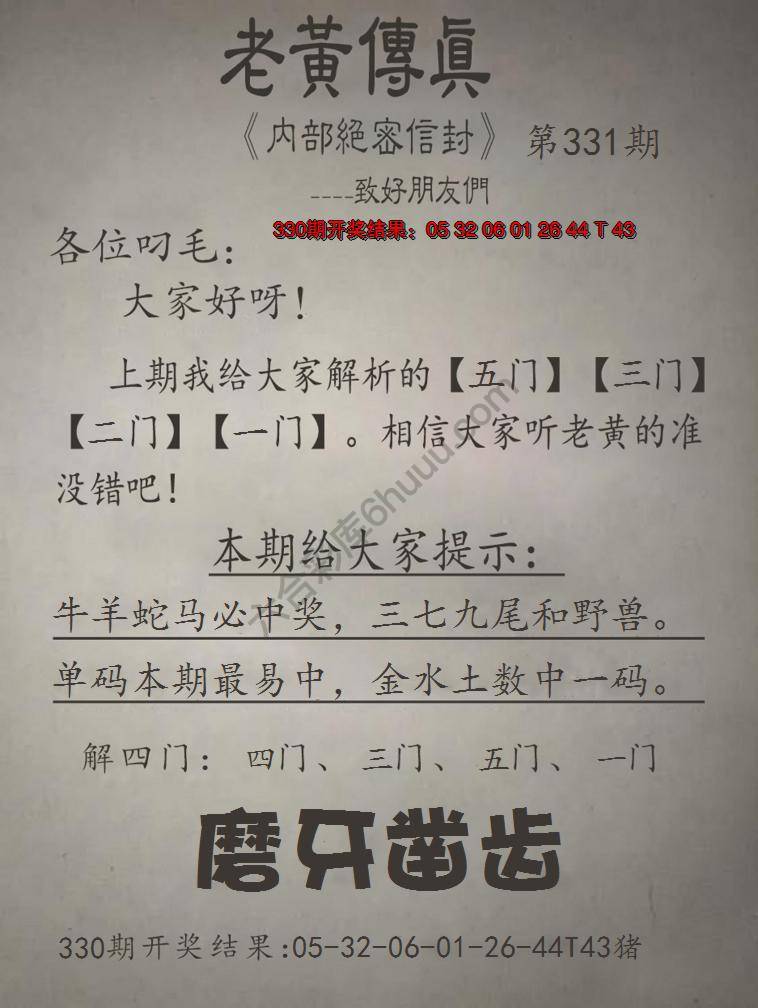 老黃傳眞
《内部絕密信封》 第331期
----致好朋友們
330期开奖结果：05 32 06 01 26 44 T 43
各位叼毛：
大家好呀！
上期我给大家解析的【五门】【三门】
【二门】【一门】。相信大家听老黄的准
没错吧！
本期给大家提示：
牛羊蛇马必中奖，三七九尾和野兽。
单码本期最易中，金水土数中一码。
解四门：四门、三门、五门、一门
磨牙凿齿
330期开奖结果:05-32-06-01-26-44T43猪
六合彩库6huuu.com